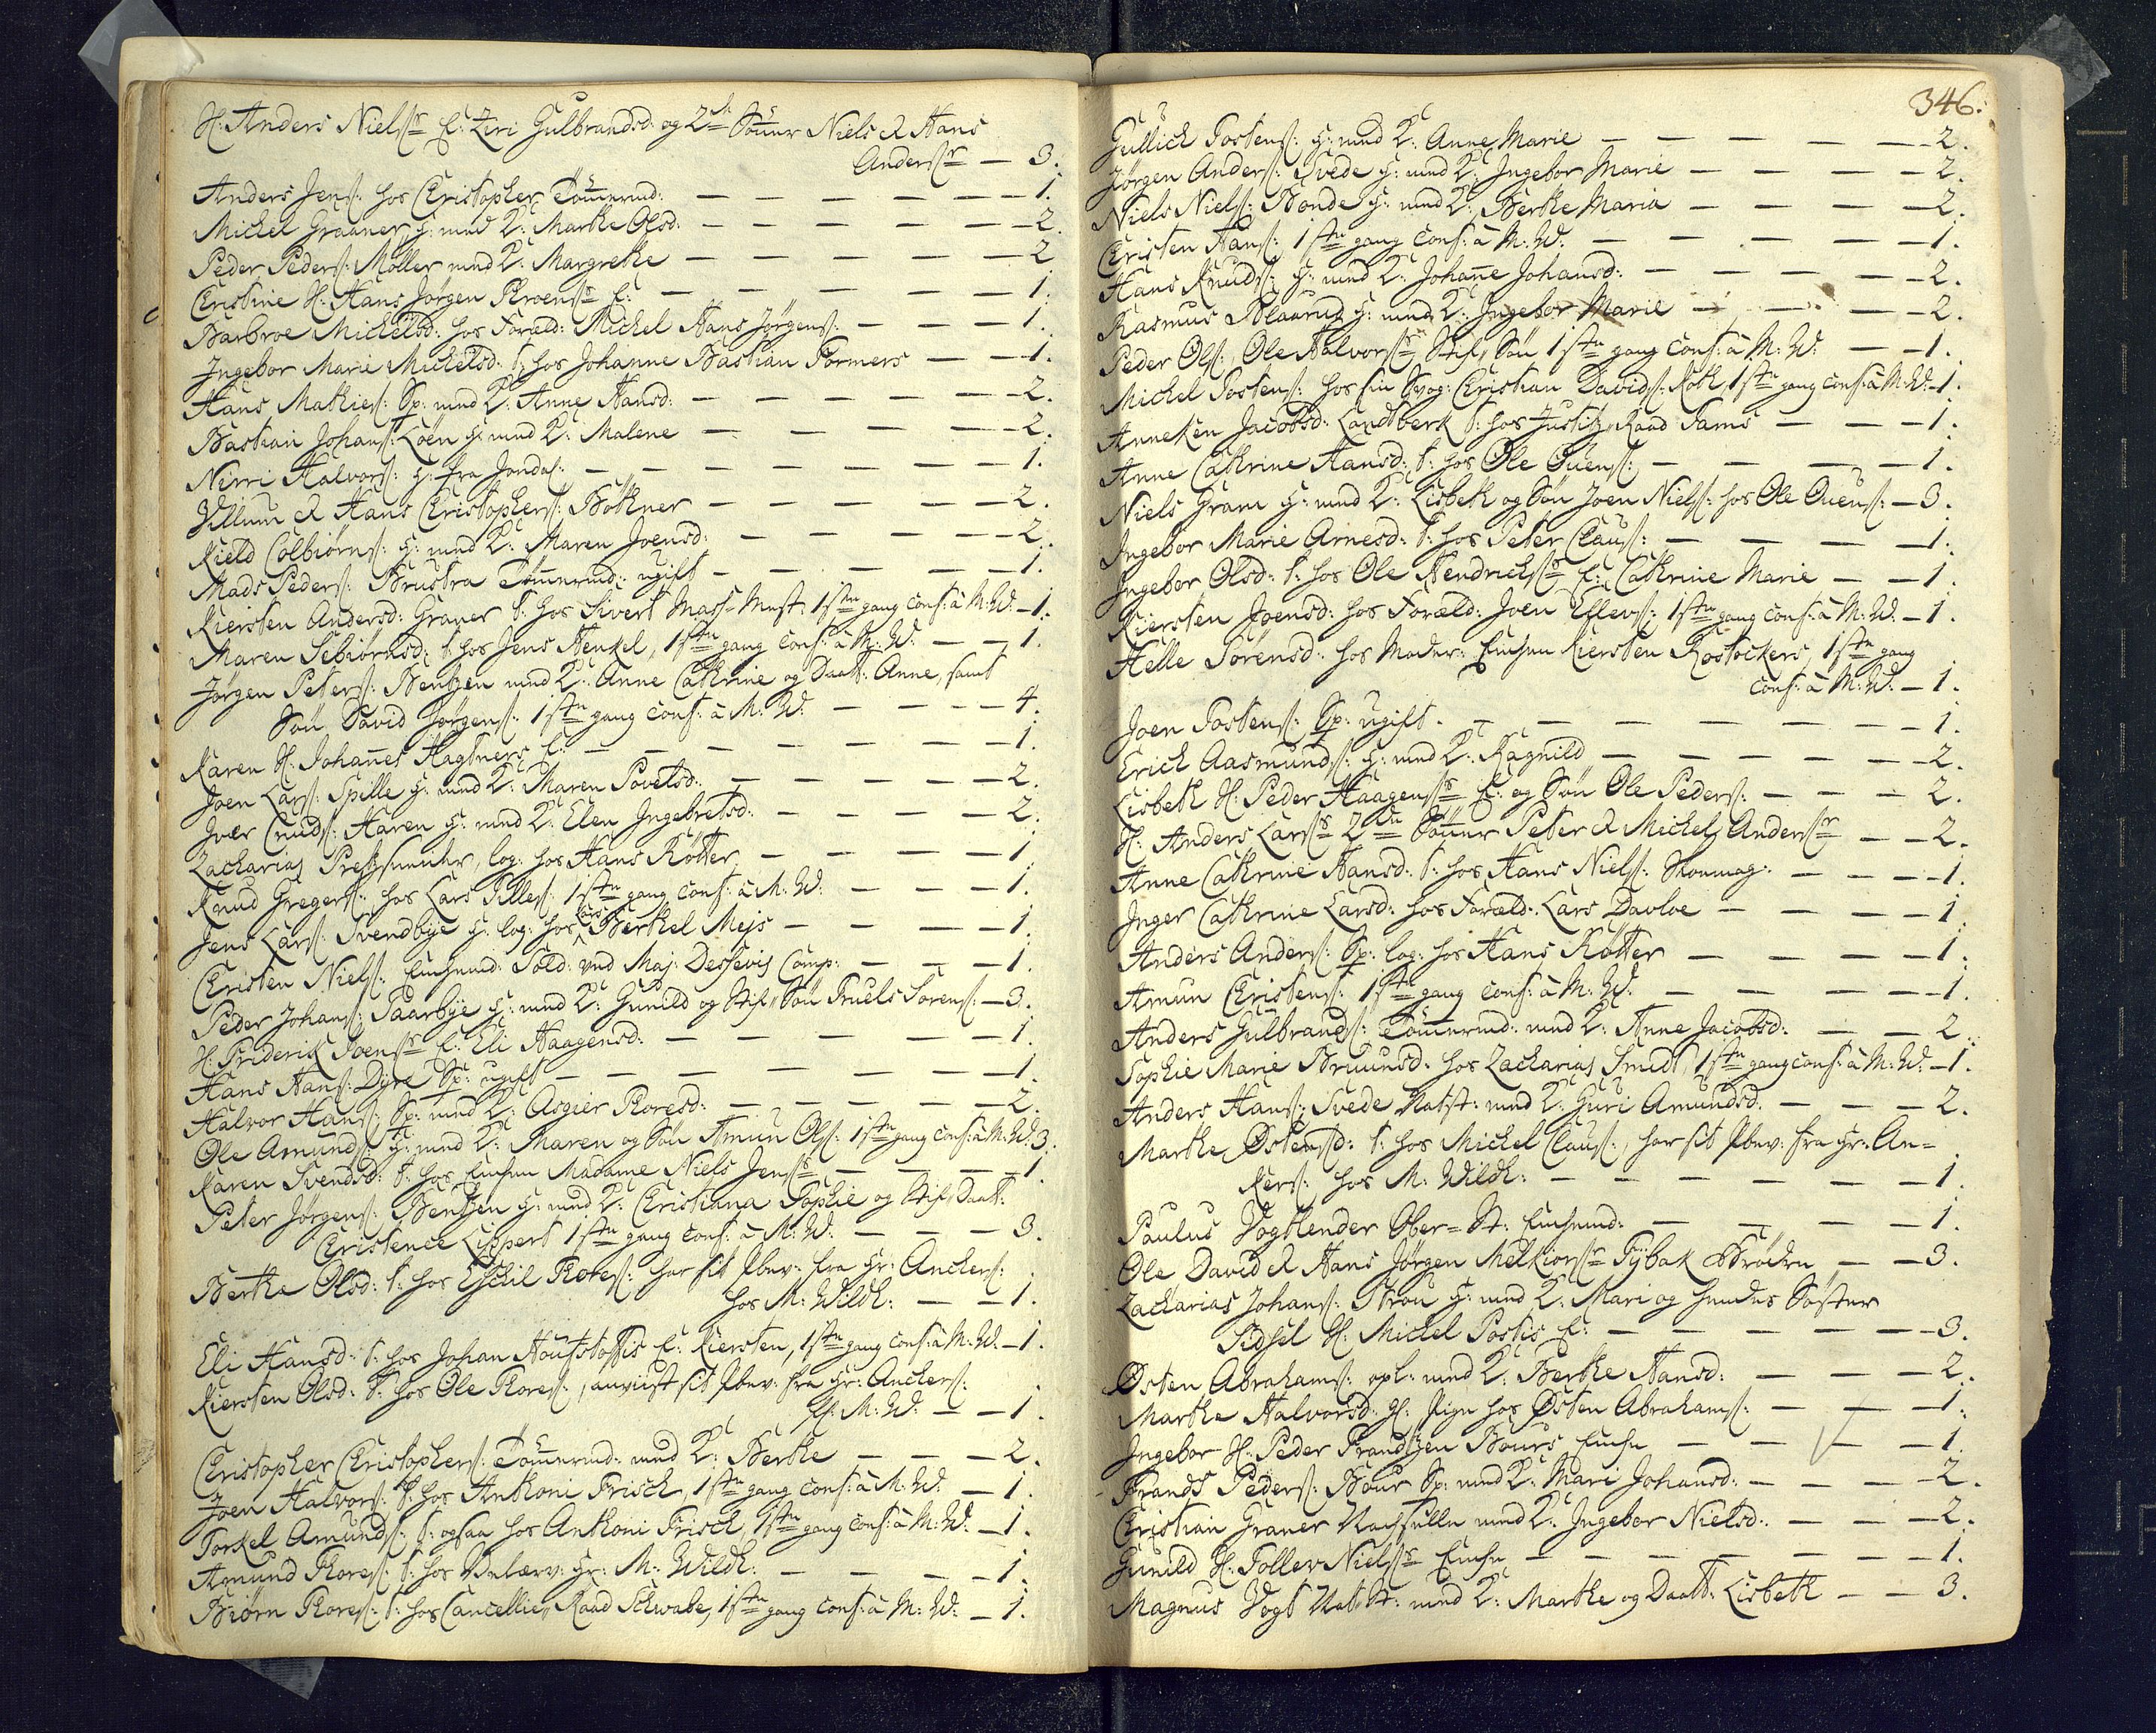 H: Anders Nielss: E: Ziri Gulbrandsd: og 2de Sönner Niels & Hans
Anderss: — 3.
Anders Jens: hos Christopher Tömmermd: — 1.
Michel Graaner, G: med K: Marthe Olsd: — 2.
Peder Peders: Möller med K: Margrethe — 2
Christine H: Hans Jörgen Throenss: E: — 1.
Barbroe Michelsd: hos Foræld: Michel Hans Jörgens: — 1.
Ingebor Marie Michelsd: t: hos Johanne Bastian Pormers — 1.
Hans Mathies: Sp: med K: Anne Hansd: — 2.
Bastian Johans: Löen G: med K: Malene — 2.
Nirri Halvors: G: fra Jondal: — 1.
Villum & Hans Christophers: Böthner — 2.
Kield Colbiörns: G: med K: Maren Joensd: — 2.
Mads Peders: Brustra Tömmermd: ugift — 1.
Kiersten Andersd: Graner t: hos Sivert Mass-Mest: 1ste gang Conf: à M: W: — 1.
Maren Sebiörnsd: t: hos Jens Henkel, 1ste gang Conf: à M: W: — 1.
Jörgen Peters: Bentzen med K: Anne Cathrine og Daatt: Anne, samt
Sön David Jörgens: 1ste gang Conf: à M: W: — 4.
Karen H: Johannes Hagtners E: — 1.
Joen Lars: Spille G: med K: Maren Povelsd: — 2.
Iver Cnuds: Haren G: med K: Elen Ingebretsd: — 2.
Zacharias log: hos Hans Rötter — 1
Knud Gregers: hos Lars Tilles: 1ste gang Conf: à M: W: — 1.
Jens Lars: Svendbye G: log: hos Lars Berthel Mejs — 1.
Christen Niels: Sold: ved Maj: Dessevis Comp: — 1.
Peder Johans: Paarbye G: med K: Gunild og Stif-Sön Truels Sörens: — 3.
H: Friderik Joenss: E: Eli Haagensd: — 1.
Hans Hans: Dyre Sp: ugift — 1.
Halvor Hans: Sp: med K: Asgier Thoresd: — 2.
Ole Amunds: G: med K: Maren og Sön Amun Ols: 1ste gang Conf: à M: W: 3.
Karen Svendsd: t: hos Madame Niels Jenss: — 1
Peter Jörgens: Bentzen G: med K: Christiana Sophie og Stif-Daatt:
Christence Lippert 1ste gang Conf: à M: W: — 3.
Berthe Olsd: t: hos Eschil Thores: har sit fra Hr: Anchers:
hos M: Wildh: — 1.
Eli Hansd: t: hos Johan E: Kiersten, 1ste gang Conf: à M: W: — 1.
Kiersten Olsd: t: hos Ole Thores:, anviist sit fra Hr: Anchers:
M: W: — 1.
Christopher Christophers: Tömmermd: med K: Berthe — 2.
Joen Halvors: t: hos Anthoni Frisch, 1ste gang Conf: à M: W: — 1.
Torkel Amunds: t: ogsaa hos Anthoni Frisch, 1ste gang Conf: à M: W: — 1.
Amund Thores: t: hos Hr: M: Wildh: — 1.
Biörn Thores: t: hos Cancellie-Raad Schwabe, 1ste gang Conf: à M: W: — 1.
346.
Gullich Tostens: G: med K: Anne Marie — 2.
Jörgen Anders: Svede G: med K: Ingebor Marie — 2.
Niels Niels: Bonde G: med K: Berthe Maria — 2.
Christen Hans: 1ste gang Conf: à M: W: — 1.
Hans Knuds: G: med K: Johanne Johansd: — 2.
Rasmus Blaarud G: med K: Ingebor Marie — 2.
Peder Ols: Ole Halvorss: Stif-Sön 1ste gang Conf: à M: W: — 1.
Michel Tostens: hos sin Svog: Christian Davids: Roth, 1ste gang Conf: à M: W: — 1.
Anneken Jacobsd: Landtberk t: hos Justitz-Raad Fams — 1.
Anne Cathrine Hansd: t: hos Ole Ouens: — 1.
Niels Gram G: med K: Lisbeth og Sön Joen Niels: hos Ole Ouens: — 3.
Ingebor Marie Arnesd: t: hos Peter Claus: — 1.
Ingebor Olsd: t: hos Ole Hendrichss: E: Cathrine Marie — 1.
Kiersten Joensd: hos Foræld: Joen Ellevs: 1ste gang Conf: à M: W: — 1.
Helle Sörensd: hos Moder: Enchen Kiersten Rostockers, 1ste gang
Conf: à M: W: — 1.
Joen Tostens: Sp: ugift — 1.
Erich Aasmunds: G: med K: Ragnild — 2.
Lisbeth H: Peder Haagenss: E: og Sön Ole Peders: — 2.
H: Anders Larss: 2de Sönner Peter & Michel Anderss: — 2.
Anne Cathrine Hansd: t: hos Hans Niels: Skomag: — 1.
Inger Cathrine Larsd: hos Foræld: Lars Davloe — 1
Anders Anders: Sp: log: hos Hans Rötter — 1.
Amun Christens: 1ste gang Conf: à M: W: — 1.
Anders Gulbrands: Tömmermd: med K: Anne Jacobsd: — 2.
Sophie Marie Bruunsd: hos Zacharias Smidt, 1ste gang Conf: à M: W: — 1.
Anders Hans: Svede Natst: med K: Guri Amundsd: — 2.
Marthe Östensd: t: hos Michel Claus:, har sit fra Hr: An-
kers: hos M: Wildh: — 1.
Paulus Vogtlender Ober- — 1.
Ole David & Hans Jörgen Melkiorss: Tybak Brödre — 3.
Zacharias Johans: Stron G: med K: Mari og hendes Söster
Sidsel H: Michel Postis E: — 3.
Östen Abrahams: opl: med K: Berthe Hansd: — 2.
Marthe Halvorsd: Pige hos Östen Abrahams: — 1.
Ingebor H: Peder Frandtzen Bours Enche — 1.
Frands Peders: Bour Sp: med K: Mari Johansd: — 2.
Christian Graner med K: Ingebor Nielsd: — 2.
Gunild H: Tollev Nielss: Enche — 1.
Magnus Vogt med K: Marthe og Daatt: Lisbeth — 3.